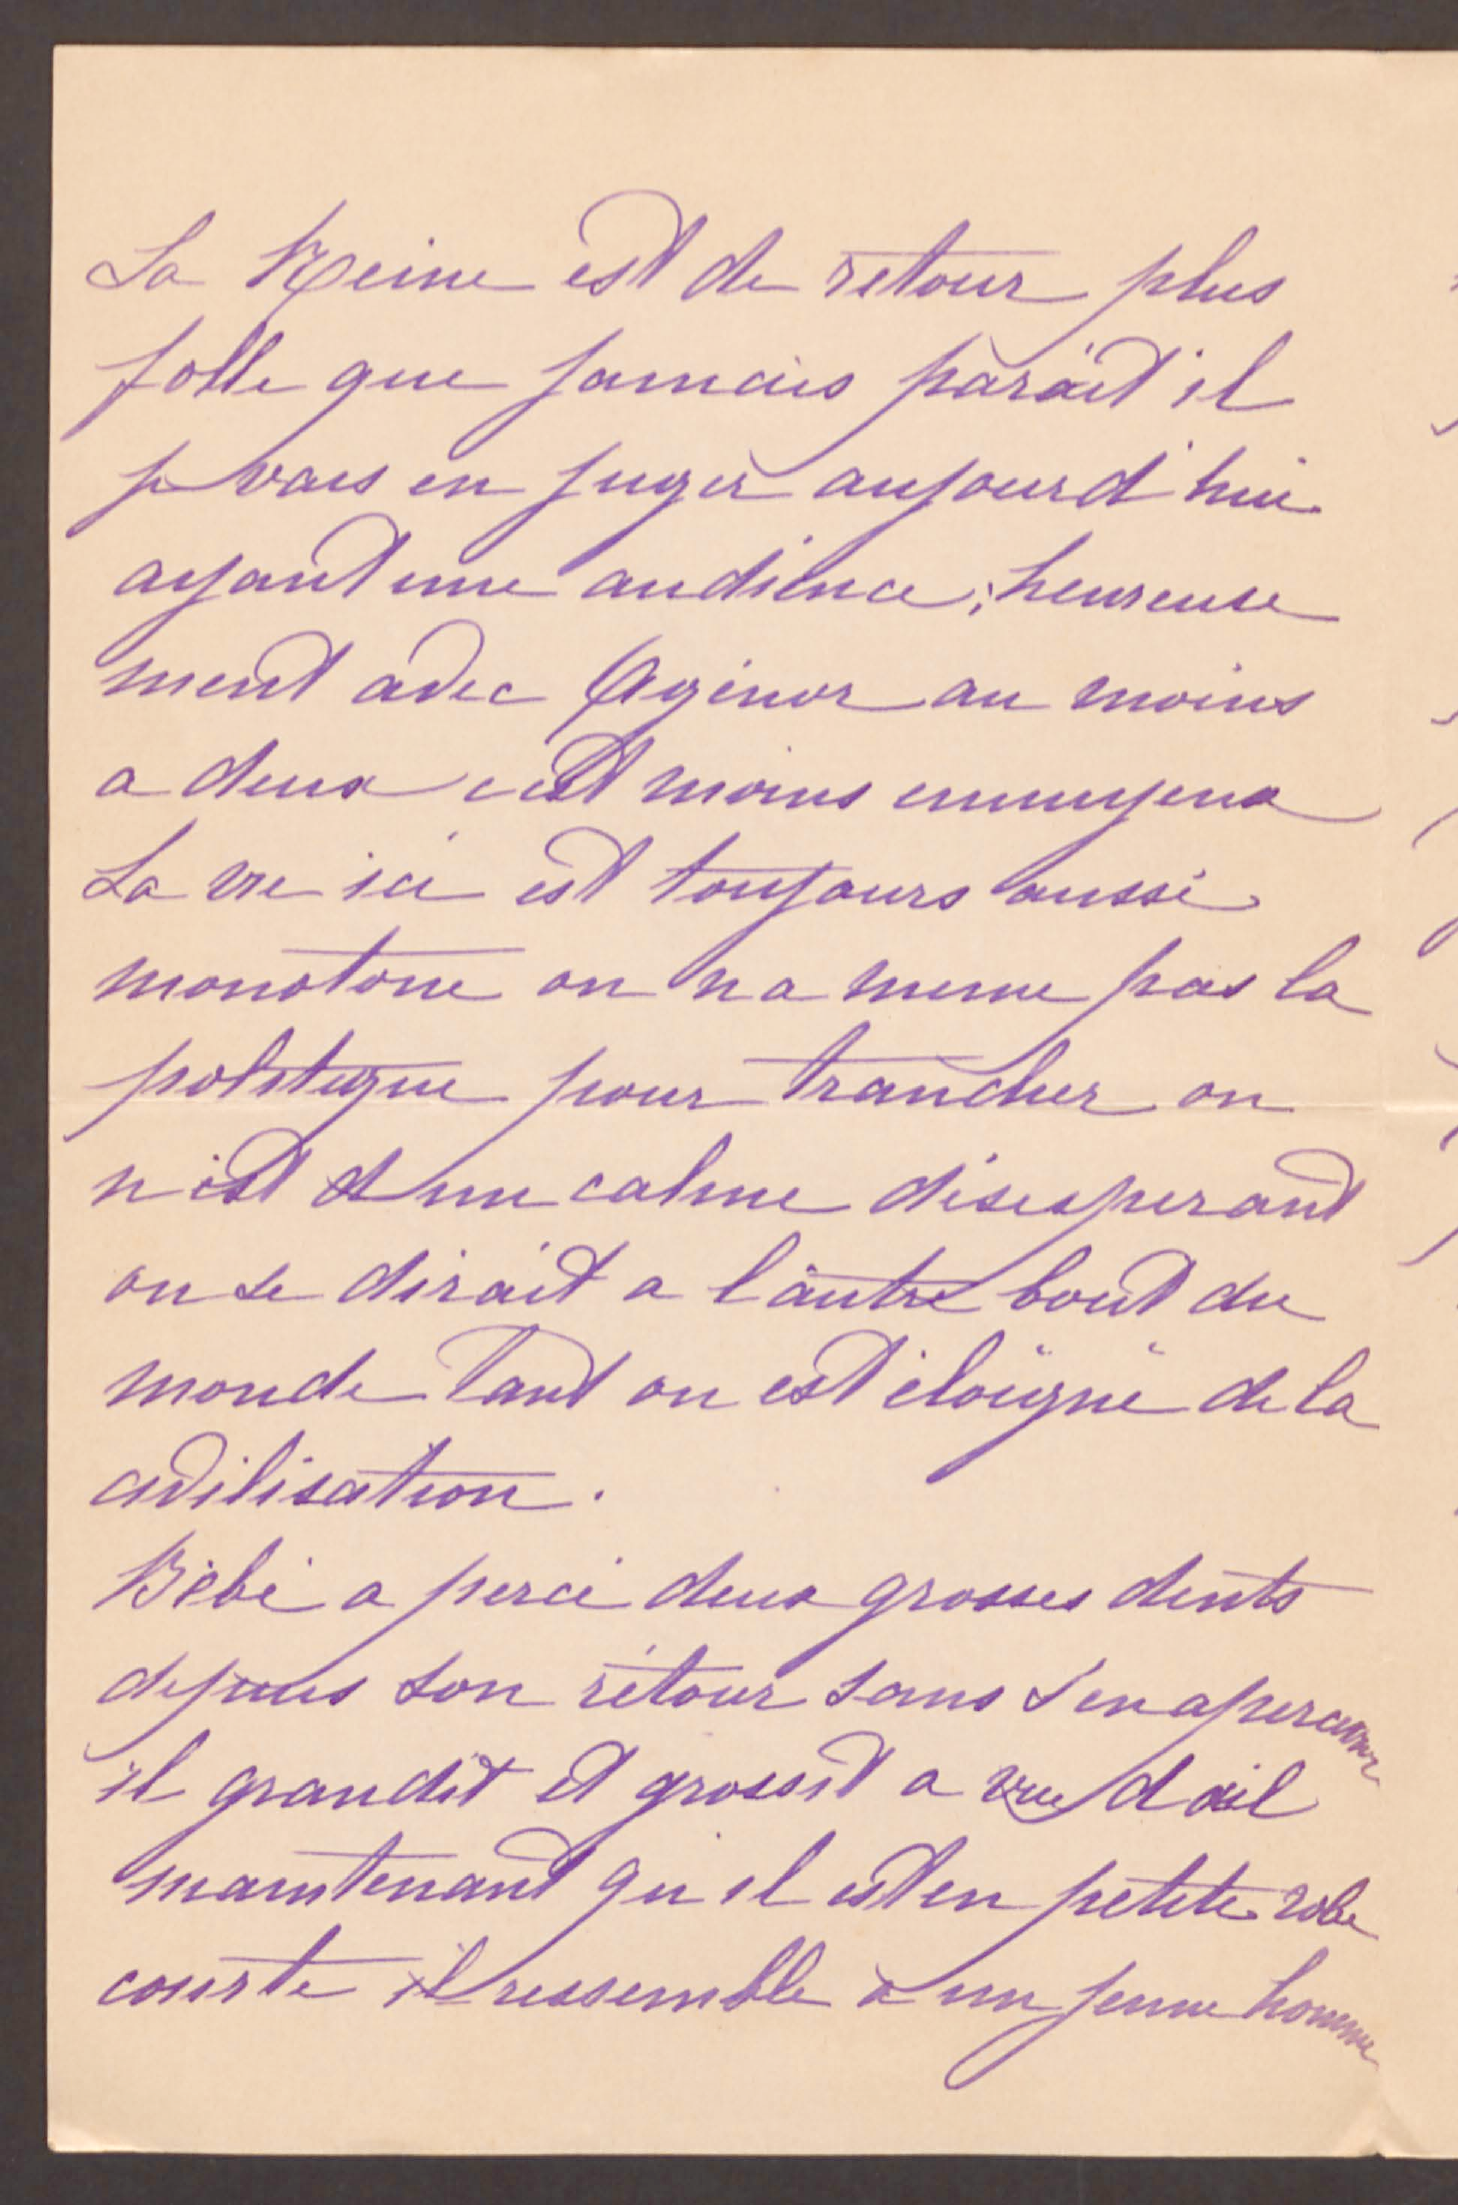 La Reine est de retour plus
folle que jamais parait il
je vais en juger aujourd'hui
ayant une audience; heureuse
ment avec Agénor au moins
a deux c'est moins ennuyeux
La vie ici est toujours aussi
monotone on n a meme pas la
politique pour trancher on
n est d un calme désesperant
on se dirait a l'autre bout du
monde tant on est éloigné de la
civilisation.
Bébé a percé deux grosses dents
depuis son retour sans s'en apercevoir
il grandit et grossit a vue d œil
maintenant qu il est en petite robe
courte il ressemble à un jeune homme